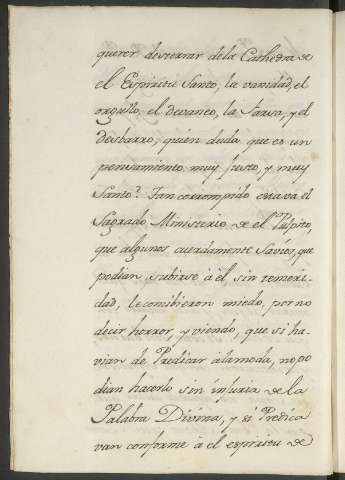 querer desterrar dela Cathedra de
el Espiritu Santo, la vanidad, el
orgullo, el devaneo, la farsa, y el
desbarro, quien duda que es un
pensamiento muy Justo, y muy
Santo? Tan corrompido estava el
Sagrado Ministerio de el Pulpito,
que algunos cuerdamente Savios, que
podian subirse à èl sin temeri-
dad, le concibieron miedo, por no
decir horror, y viendo, que si ha-
vian de Predicar alamoda, no po
dian hacerlo sin injuria de la
Palabra Divina, y si Predica
van conforme à el espiritu de